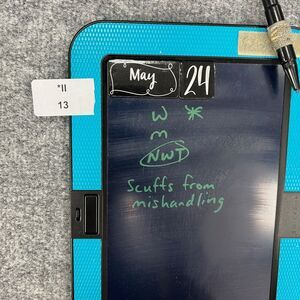 May 24
*II
13
W *
M
NWT
Scuffs from
mishandling